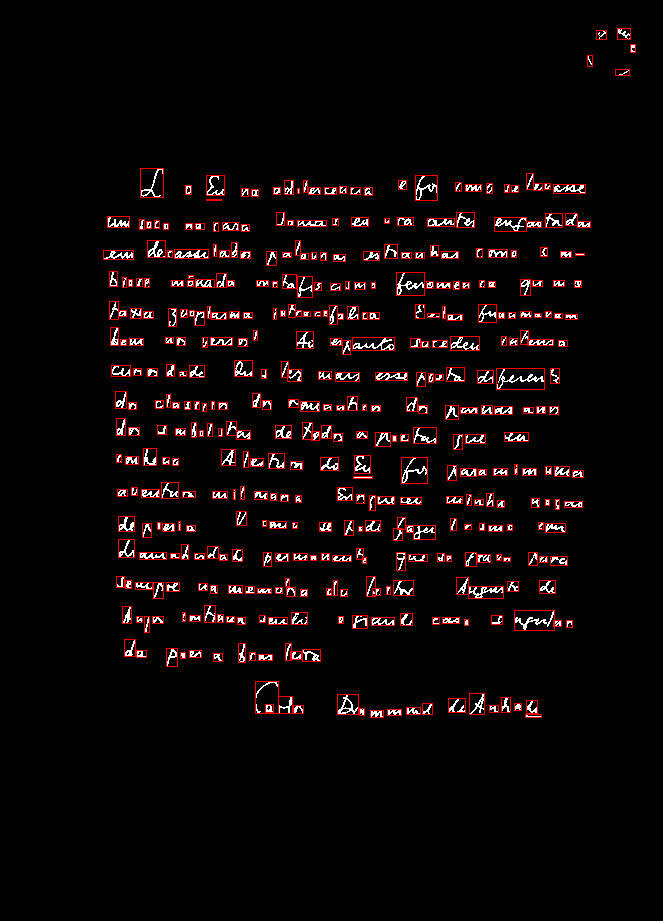 Li o Eu na adolescência e foi como se levasse
um soco na cara. Jamais eu vira antes engastadas
em decassílabos palavras estranhas como sim-
biose, mônada, metafisicismo, fenomênica, quimio
taxia, zooplasma, intracefálica. E elas funcionavam
bem nos versos! Ao espanto sucedeu intensa
curiosidade. Quis ler mais esse poeta diferente
dos clássicos, dos românticos, dos parnasianos,
dos simbolistas, de todos os poetas que eu
conhecia. A leitura do Eu foi para mim uma
aventura milionária. Enriqueceu minha noção
de poesia. Vi como se pode fazer lirismo com
dramaticidade permanente, que se grava para
sempre na memória do leitor. Augusto dos
Anjos continua sendo o grande caso singular
da poesia brasileira.
Carlos Drummond de Andrade